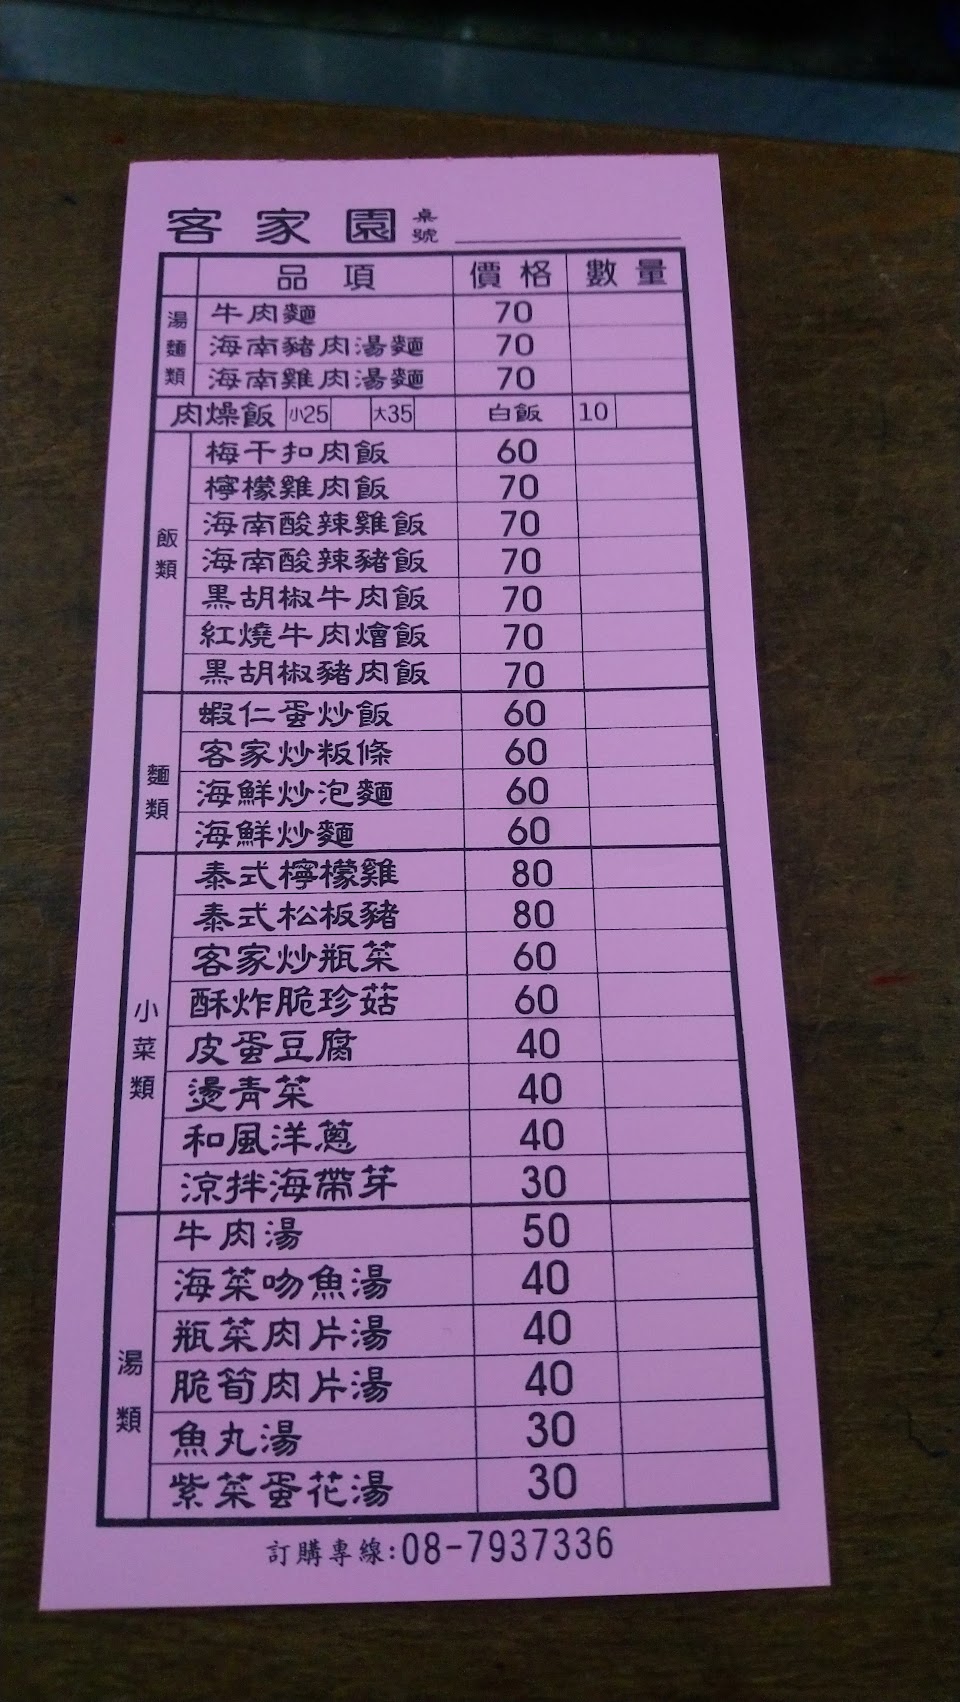 客家園 桌號
品項 價格 數量
湯麵類
牛肉麵 70
海南豬肉湯麵 70
海南雞肉湯麵 70
肉燥飯 小25 大35 白飯 10
飯類
梅干扣肉飯 60
檸檬雞肉飯 70
海南酸辣雞飯 70
海南酸辣豬飯 70
黑胡椒牛肉飯 70
紅燒牛肉燴飯 70
黑胡椒豬肉飯 70
麵類
蝦仁蛋炒飯 60
客家炒粄條 60
海鮮炒泡麵 60
海鮮炒麵 60
小菜類
泰式檸檬雞 80
泰式松板豬 80
客家炒瓶菜 60
酥炸脆珍菇 60
皮蛋豆腐 40
燙青菜 40
和風洋蔥 40
涼拌海帶芽 30
湯類
牛肉湯 50
海菜吻魚湯 40
瓶菜肉片湯 40
脆筍肉片湯 40
魚丸湯 30
紫菜蛋花湯 30
訂購專線:08-7937336